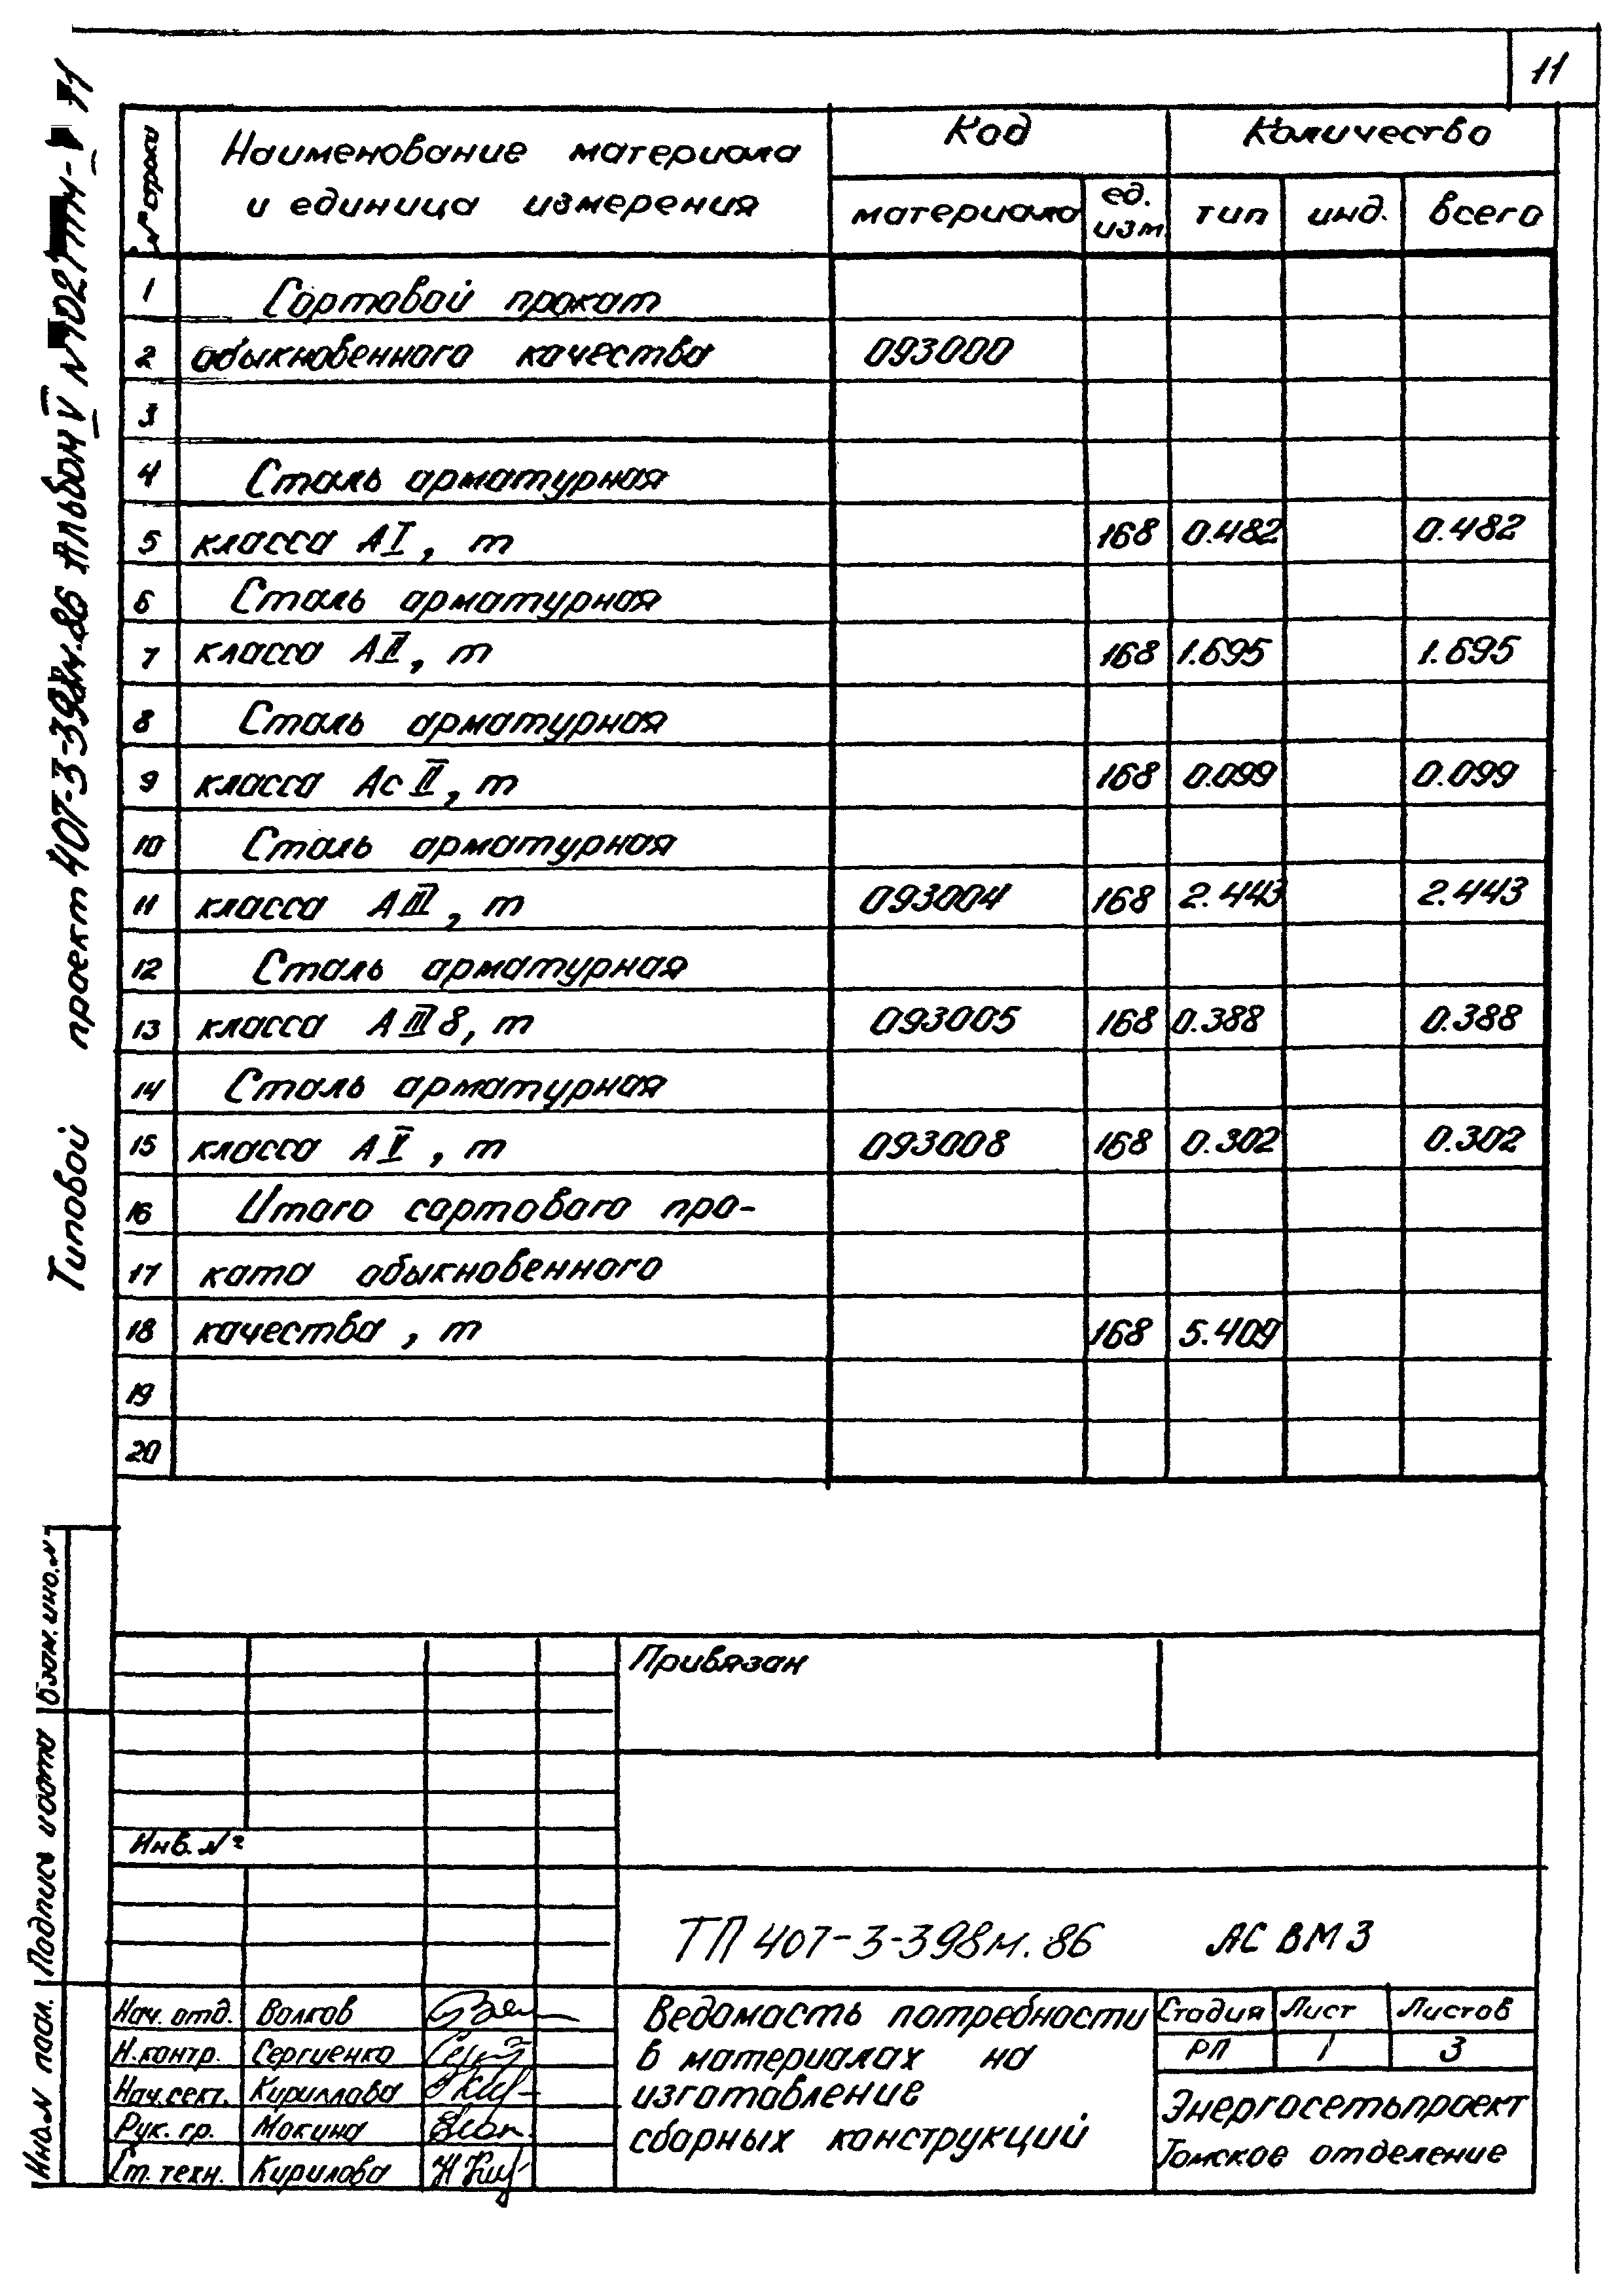 11
Типовой проект 407-3-398м.86 Альбом V
№ строки
Наименование материала
и единица измерения
Код
Количество
материала
ед. изм.
тип
инд.
всего
1 Сортовой прокат
2 обыкновенного качества 093000
3
4 Сталь арматурная
5 класса АI, т 168 0.482 0.482
6 Сталь арматурная
7 класса АII, т 168 1.695 1.695
8 Сталь арматурная
9 класса Ас II, т 168 0.099 0.099
10 Сталь арматурная
11 класса АIII, т 093004 168 2.443 2.443
12 Сталь арматурная
13 класса АIII в, т 093005 168 0.388 0.388
14 Сталь арматурная
15 класса АV, т 093008 168 0.302 0.302
16 Итого сортового про-
17 ката обыкновенного
18 качества, т 168 5.409
19
20
Взам. инв. №
Подпись и дата
Инв. № подл.
Привязан
Инв. №
ТП 407-3-398м.86 АС ВМ 3
Нач. отд. Волков
Н. контр. Сергиенко
Нач. сект. Кириллова
Рук. гр. Мокина
Ст. техн. Кирилова
Ведомасть потребности
в материалах на
изготовление
сборных конструкций
Стадия Лист Листов
РП 1 3
Энергосетьпроект
Томское отделение